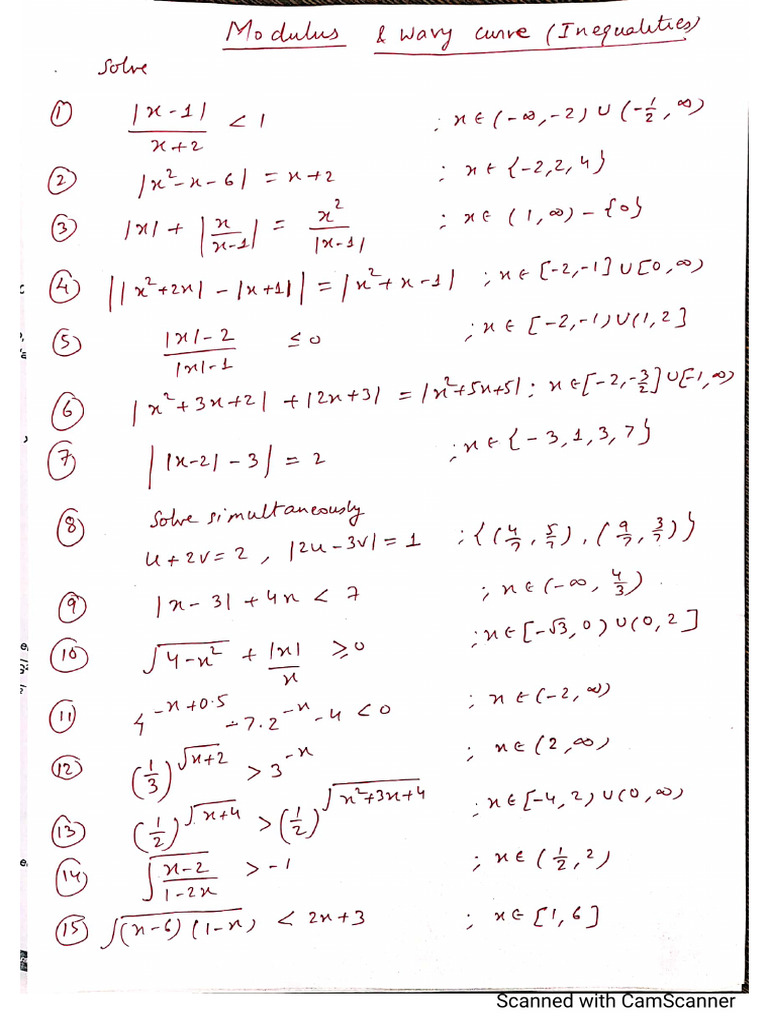 Modulus & Wavy curve (Inequalities)
Solve
① |x-1|/(x+2) < 1 ; x ∈ (-∞, -2) ∪ (-1/2, ∞)
② |x²-x-6| = x+2 ; x ∈ {-2, 2, 4}
③ |x| + |x/(x-1)| = x²/|x-1| ; x ∈ (1, ∞) - {0}
④ ||x²+2x| - |x+1|| = |x²+x-1| ; x ∈ [-2, -1] ∪ [0, ∞)
⑤ (|x|-2)/(|x|-1) ≤ 0 ; x ∈ [-2, -1) ∪ (1, 2]
⑥ |x²+3x+2| + |2x+3| = |x²+5x+5| ; x ∈ [-2, -3/2] ∪ [-1, ∞)
⑦ ||x-2| - 3| = 2 ; x ∈ {-3, 1, 3, 7}
⑧ Solve simultaneously
u+2v = 2, |2u-3v| = 1 ; {(4/7, 5/7), (9/7, 3/7)}
⑨ |x-3| + 4x < 7 ; x ∈ (-∞, 4/3).
⑩ √(4-x²) + |x|/x ≥ 0 ; x ∈ [-√3, 0) ∪ (0, 2]
⑪ 4^(-x+0.5) - 7.2^(-x) - 4 < 0 ; x ∈ (-2, ∞)
⑫ (1/3)^√(x+2) > 3^(-x) ; x ∈ (2, ∞)
⑬ (1/2)^√(x+4) > (1/2)^√(x²+3x+4) ; x ∈ [-4, 2) ∪ (0, ∞)
⑭ √((x-2)/(1-2x)) > -1 ; x ∈ (1/2, 2)
⑮ √((x-6)(1-x)) < 2x+3 ; x ∈ [1, 6]
Scanned with CamScanner